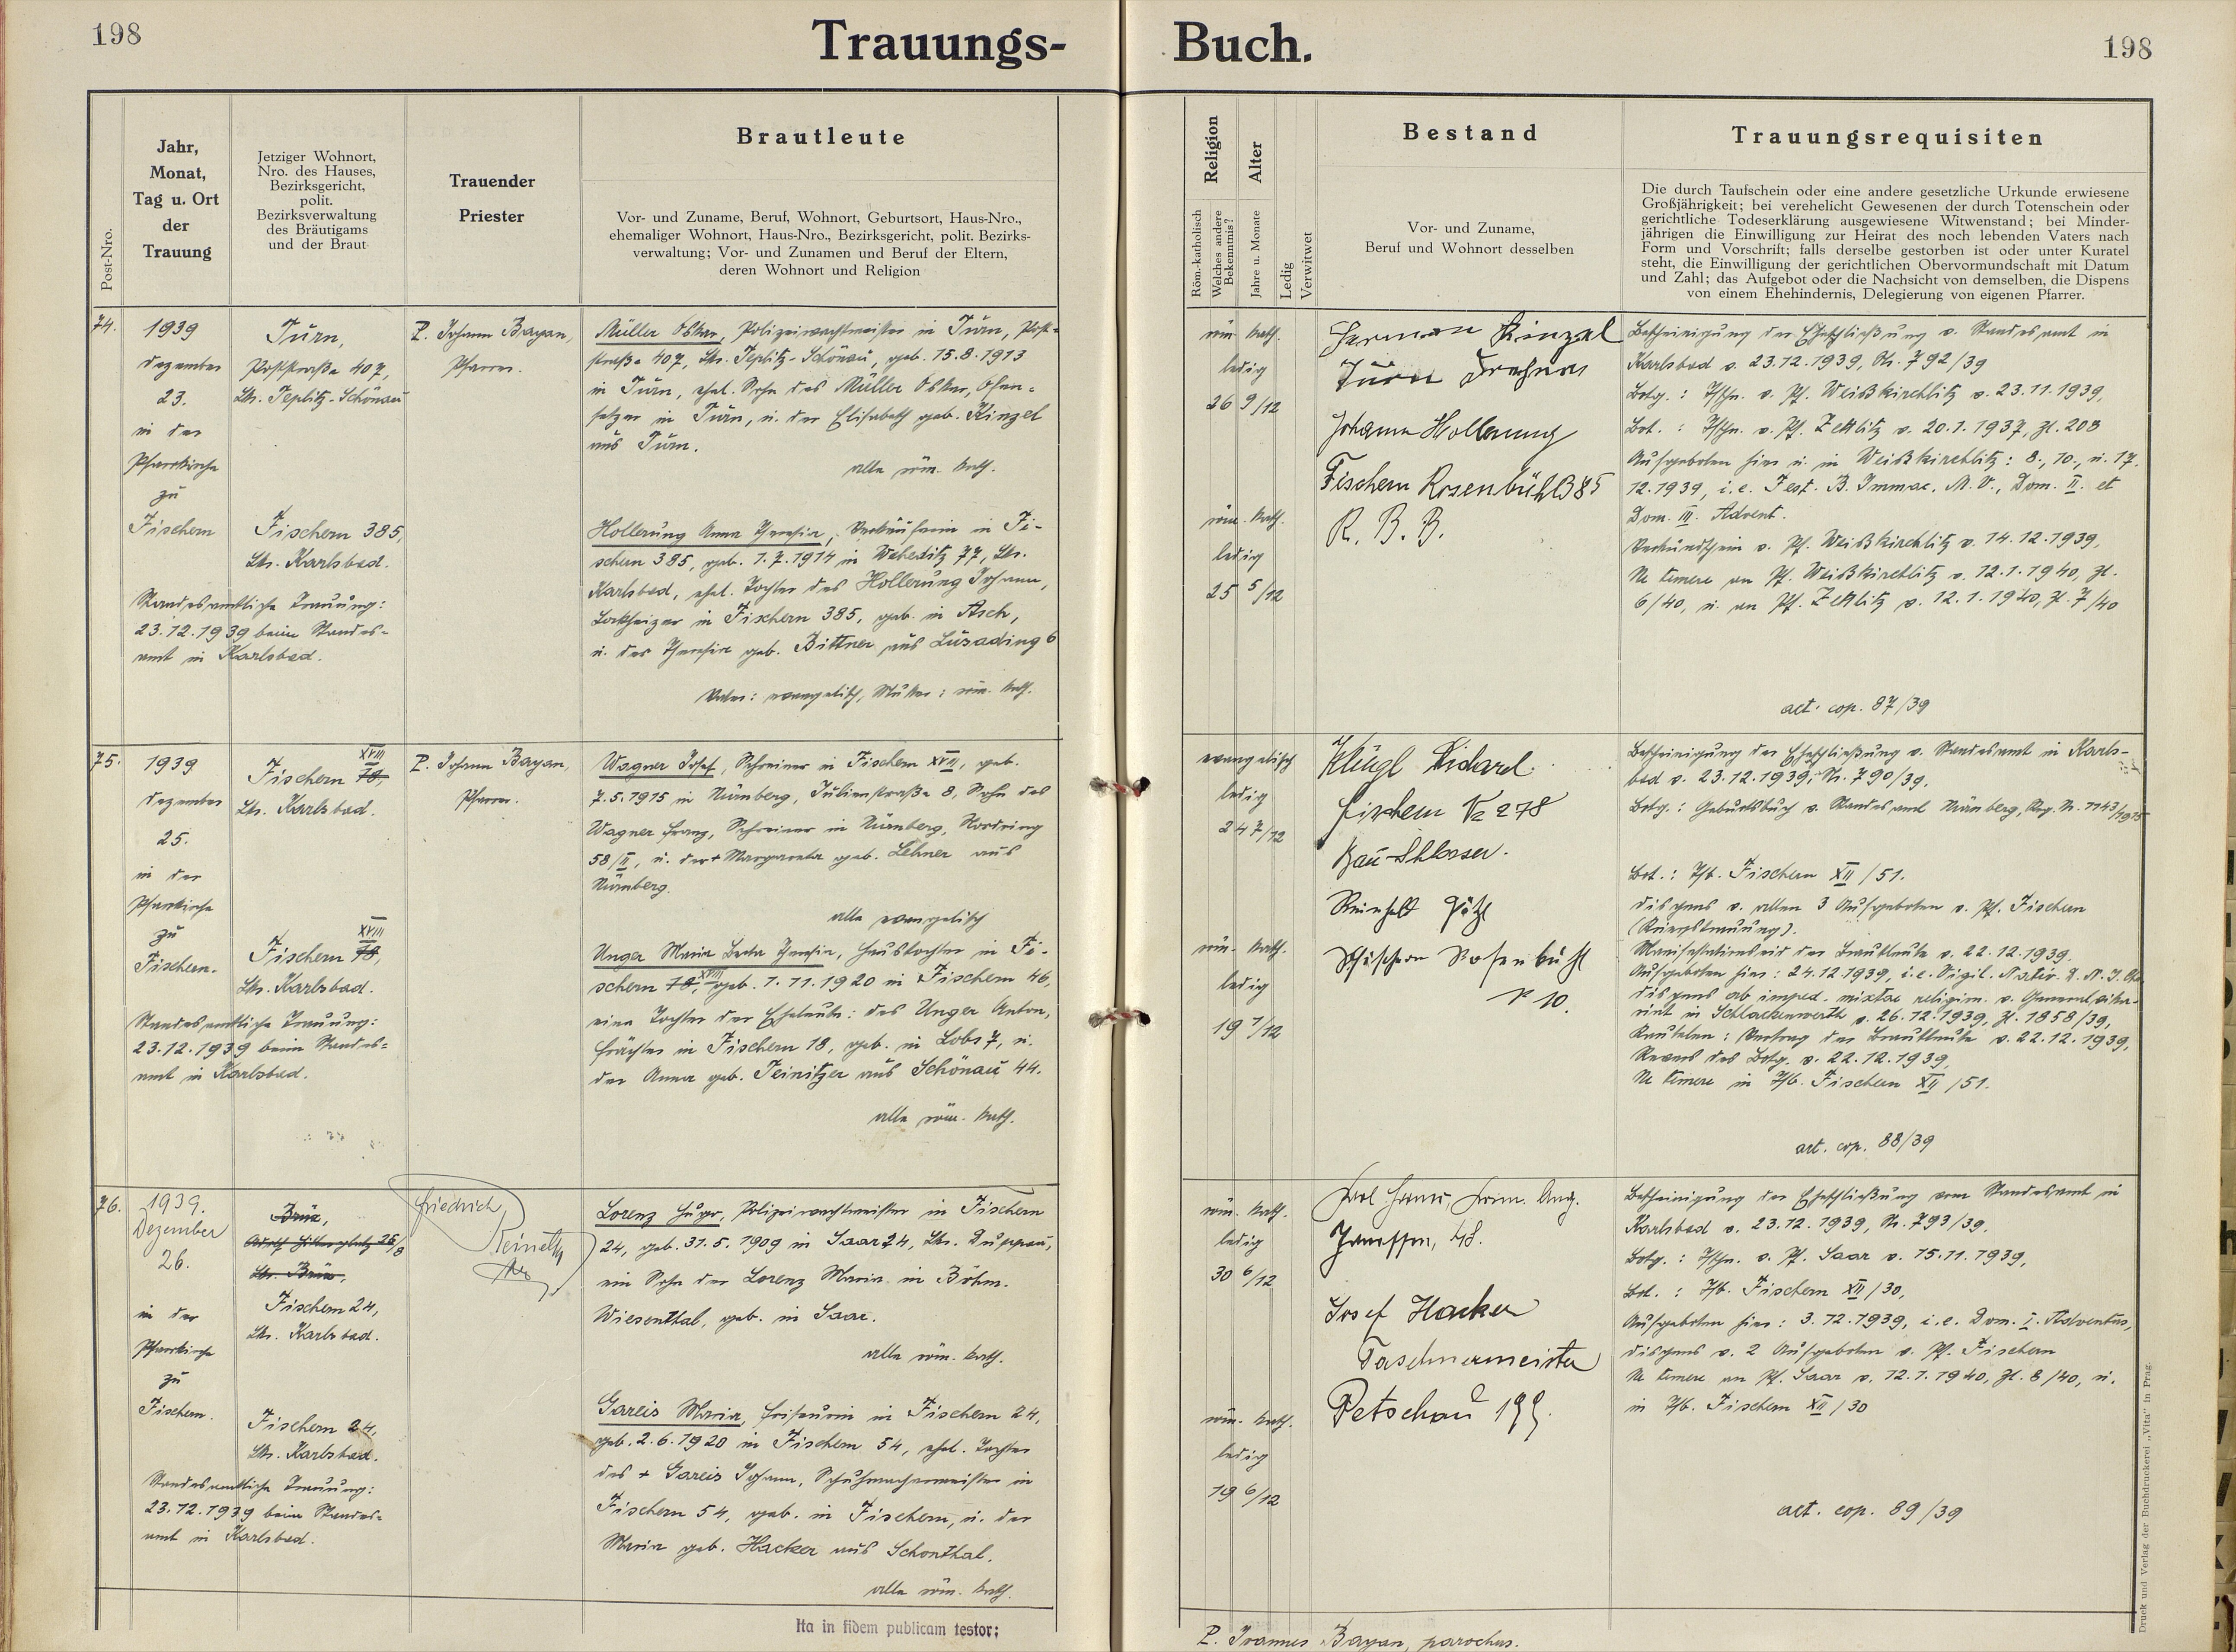 198
Trauungs-
Buch.
198
Post-Nro.
Jahr,
Monat,
Tag u. Ort
der
Trauung
Jetziger Wohnort,
Nro. des Hauses,
Bezirksgericht,
polit.
Bezirksverwaltung
des Bräutigams
und der Braut
Trauender
Priester
Brautleute
Vor- und Zuname, Beruf, Wohnort, Geburtsort, Haus-Nro.,
ehemaliger Wohnort, Haus-Nro., Bezirksgericht, polit. Bezirks-
verwaltung; Vor- und Zunamen und Beruf der Eltern,
deren Wohnort und Religion
Religion
Röm.-katholisch
Welches andere
Bekenntnis?
Alter
Jahre u. Monate
Ledig
Verwitwet
Bestand
Vor- und Zuname,
Beruf und Wohnort desselben
Trauungsrequisiten
Die durch Taufschein oder eine andere gesetzliche Urkunde erwiesene
Großjährigkeit; bei verehelicht Gewesenen der durch Totenschein oder
gerichtliche Todeserklärung ausgewiesene Witwenstand; bei Minder-
jährigen die Einwilligung zur Heirat des noch lebenden Vaters nach
Form und Vorschrift; falls derselbe gestorben ist oder unter Kuratel
steht, die Einwilligung der gerichtlichen Obervormundschaft mit Datum
und Zahl; das Aufgebot oder die Nachsicht von demselben, die Dispens
von einem Ehehindernis, Delegierung von eigenen Pfarrer.
74.
1939
Dezember
23.
in der
Pfarrkirche
zu
Fischern
Standesamtliche Trauung:
23.12.1939 beim Standes-
amt in Karlsbad.
Turn,
Poststraße 407,
Lkr. Teplitz-Schönau
Fischern 385,
Lkr. Karlsbad.
P. Johann Bayan,
Pfarrer.
Müller Oskar, Polizeiwachtmeister in Turn, Post-
straße 407, Lkr. Teplitz-Schönau, geb. 15.8.1913
in Turn, ehel. Sohn des Müller Oskar, Ofen-
setzer in Turn, u. der Elisabeth geb. Kinzel
aus Turn.
alle röm. kath.
Hollerung Anna Theresia, Verkäuferin in Fi-
schern 385, geb. 1.7.1914 in Weheditz 77, Lkr.
Karlsbad, ehel. Tochter des Hollerung Johann,
Lokheizer in Fischern 385, geb. in Asch,
u. der Theresia geb. Bittner aus Lusading 6
Vater: evangelisch, Mutter: röm. kath.
röm. kath.
ledig
26 9/12
röm. kath.
ledig
25 5/12
Herman Kinzel
Turn
Johann Hollerung
Fischern Rosenbühl 385
R. B. B.
Bescheinigung der Eheschließung v. Standesamt in
Karlsbad v. 23.12.1939, Nr. 792/39
Btg.: Tfschn. v. Pf. Weißkirchlitz v. 23.11.1939,
Brt.: Tfschn. v. Pf. Zettlitz v. 20.1.1937, Zl. 208
Aufgeboten hier u. in Weißkirchlitz: 8., 10., u. 17.
12.1939, i.e. Fest. B. Immac. M.V., Dom. II. et
Dom. III. Advent.
Verkündschein v. Pf. Weißkirchlitz v. 14.12.1939,
Ne temere an Pf. Weißkirchlitz v. 12.1.1940, Zl.
6/40, u. an Pf. Zettlitz v. 12.1.1940, Zl. 7/40
act. cop. 87/39
75.
1939
Dezember
25.
in der
Pfarrkirche
zu
Fischern.
Standesamtliche Trauung:
23.12.1939 beim Standes-
amt in Karlsbad.
XVIII
Fischern 18,
Lkr. Karlsbad.
XVIII
Fischern 18,
Lkr. Karlsbad.
P. Johann Bayan,
Pfarrer.
Wagner Josef, Schreiner in Fischern XVIII, geb.
7.5.1915 in Nürnberg, Julienstraße 8, Sohn des
Wagner Franz, Schreiner in Nürnberg, Nordring
58/II, u. der + Margareta geb. Lehner aus
Nürnberg.
alle evangelisch
Unger Maria Berta Theresia, Haustochter in Fi-
schern 18, XVIII geb. 1.11.1920 in Fischern 46,
eine Tochter der Eheleute: des Unger Anton,
Frächter in Fischern 18, geb. in Lobs 7, u.
der Anna geb. Teinitzer aus Schönau 44.
alle röm. kath.
evangelisch
ledig
24 7/12
röm. kath.
ledig
19 1/12
Klügl Richard
Fischern № 278
Bau-Schlosser.
Reinhold Götzl
Fischern Rosenbühl
№ 10.
Bescheinigung der Eheschließung v. Standesamt in Karls-
bad v. 23.12.1939, Nr. 790/39.
Btg.: Geburtsbuch v. Standesamt Nürnberg, Reg. Nr. 1143/1915
Brt.: Tfb. Fischern XII/51.
Dispens v. allen 3 Aufgeboten v. Pf. Fischern
(Kriegstrauung).
Manifestationseid der Brautleute v. 22.12.1939.
Aufgeboten hier: 24.12.1939, i.e. Vigil. Nativ.
Dispens ab imped. mixtae religion. v. Generalvika-
riat in Schlackenwerth v. 26.12.1939, Zl. 1858/39,
Kautelen: Vertrag der Brautleute v. 22.12.1939,
Revers des Btg. v. 22.12.1939,
Ne temere in Tfb. Fischern XII/51.
act. cop. 88/39
76.
1939.
Dezember
26.
in der
Pfarrkirche
zu
Fischern.
Standesamtliche Trauung:
23.12.1939 beim Standes-
amt in Karlsbad.
Brüx,
Adolf Hitlerplatz 26/8
Lkr. Brüx,
Fischern 24,
Lkr. Karlsbad.
Fischern 24,
Lkr. Karlsbad.
Friedrich
Lorenz Hugo, Polizeiwachtmeister in Fischern
24, geb. 31.5.1909 in Saar 24, Lkr. Duppau,
ein Sohn der Lorenz Maria in Böhm.
Wiesenthal, geb. in Saar.
alle röm. kath.
Gareis Maria, Friseurin in Fischern 24,
geb. 2.6.1920 in Fischern 54, ehel. Tochter
des + Gareis Johann, Schuhmachermeister in
Fischern 54, geb. in Fischern, u. der
Maria geb. Hacker aus Schönthal.
alle röm. kath.
röm. kath.
ledig
30 6/12
röm. kath.
ledig
19 6/12
48.
Josef Hacker
Taschnermeister
Petschau 199.
Bescheinigung der Eheschließung vom Standesamt in
Karlsbad v. 23.12.1939, Nr. 793/39.
Btg.: Tfschn. v. Pf. Saar v. 15.11.1939,
Brt.: Tfb. Fischern XII/30,
Aufgeboten hier: 3.12.1939, i.e. Dom. I. Adventus,
Dispens v. 2 Aufgeboten v. Pf. Fischern
Ne temere an Pf. Saar v. 12.1.1940, Zl. 8/40, u.
in Tfb. Fischern XII/30
act. cop. 89/39
Ita in fidem publicam testor:
P. Joannes Bayan, parochus.
Druck und Verlag der Buchdruckerei „Vita“ in Prag.